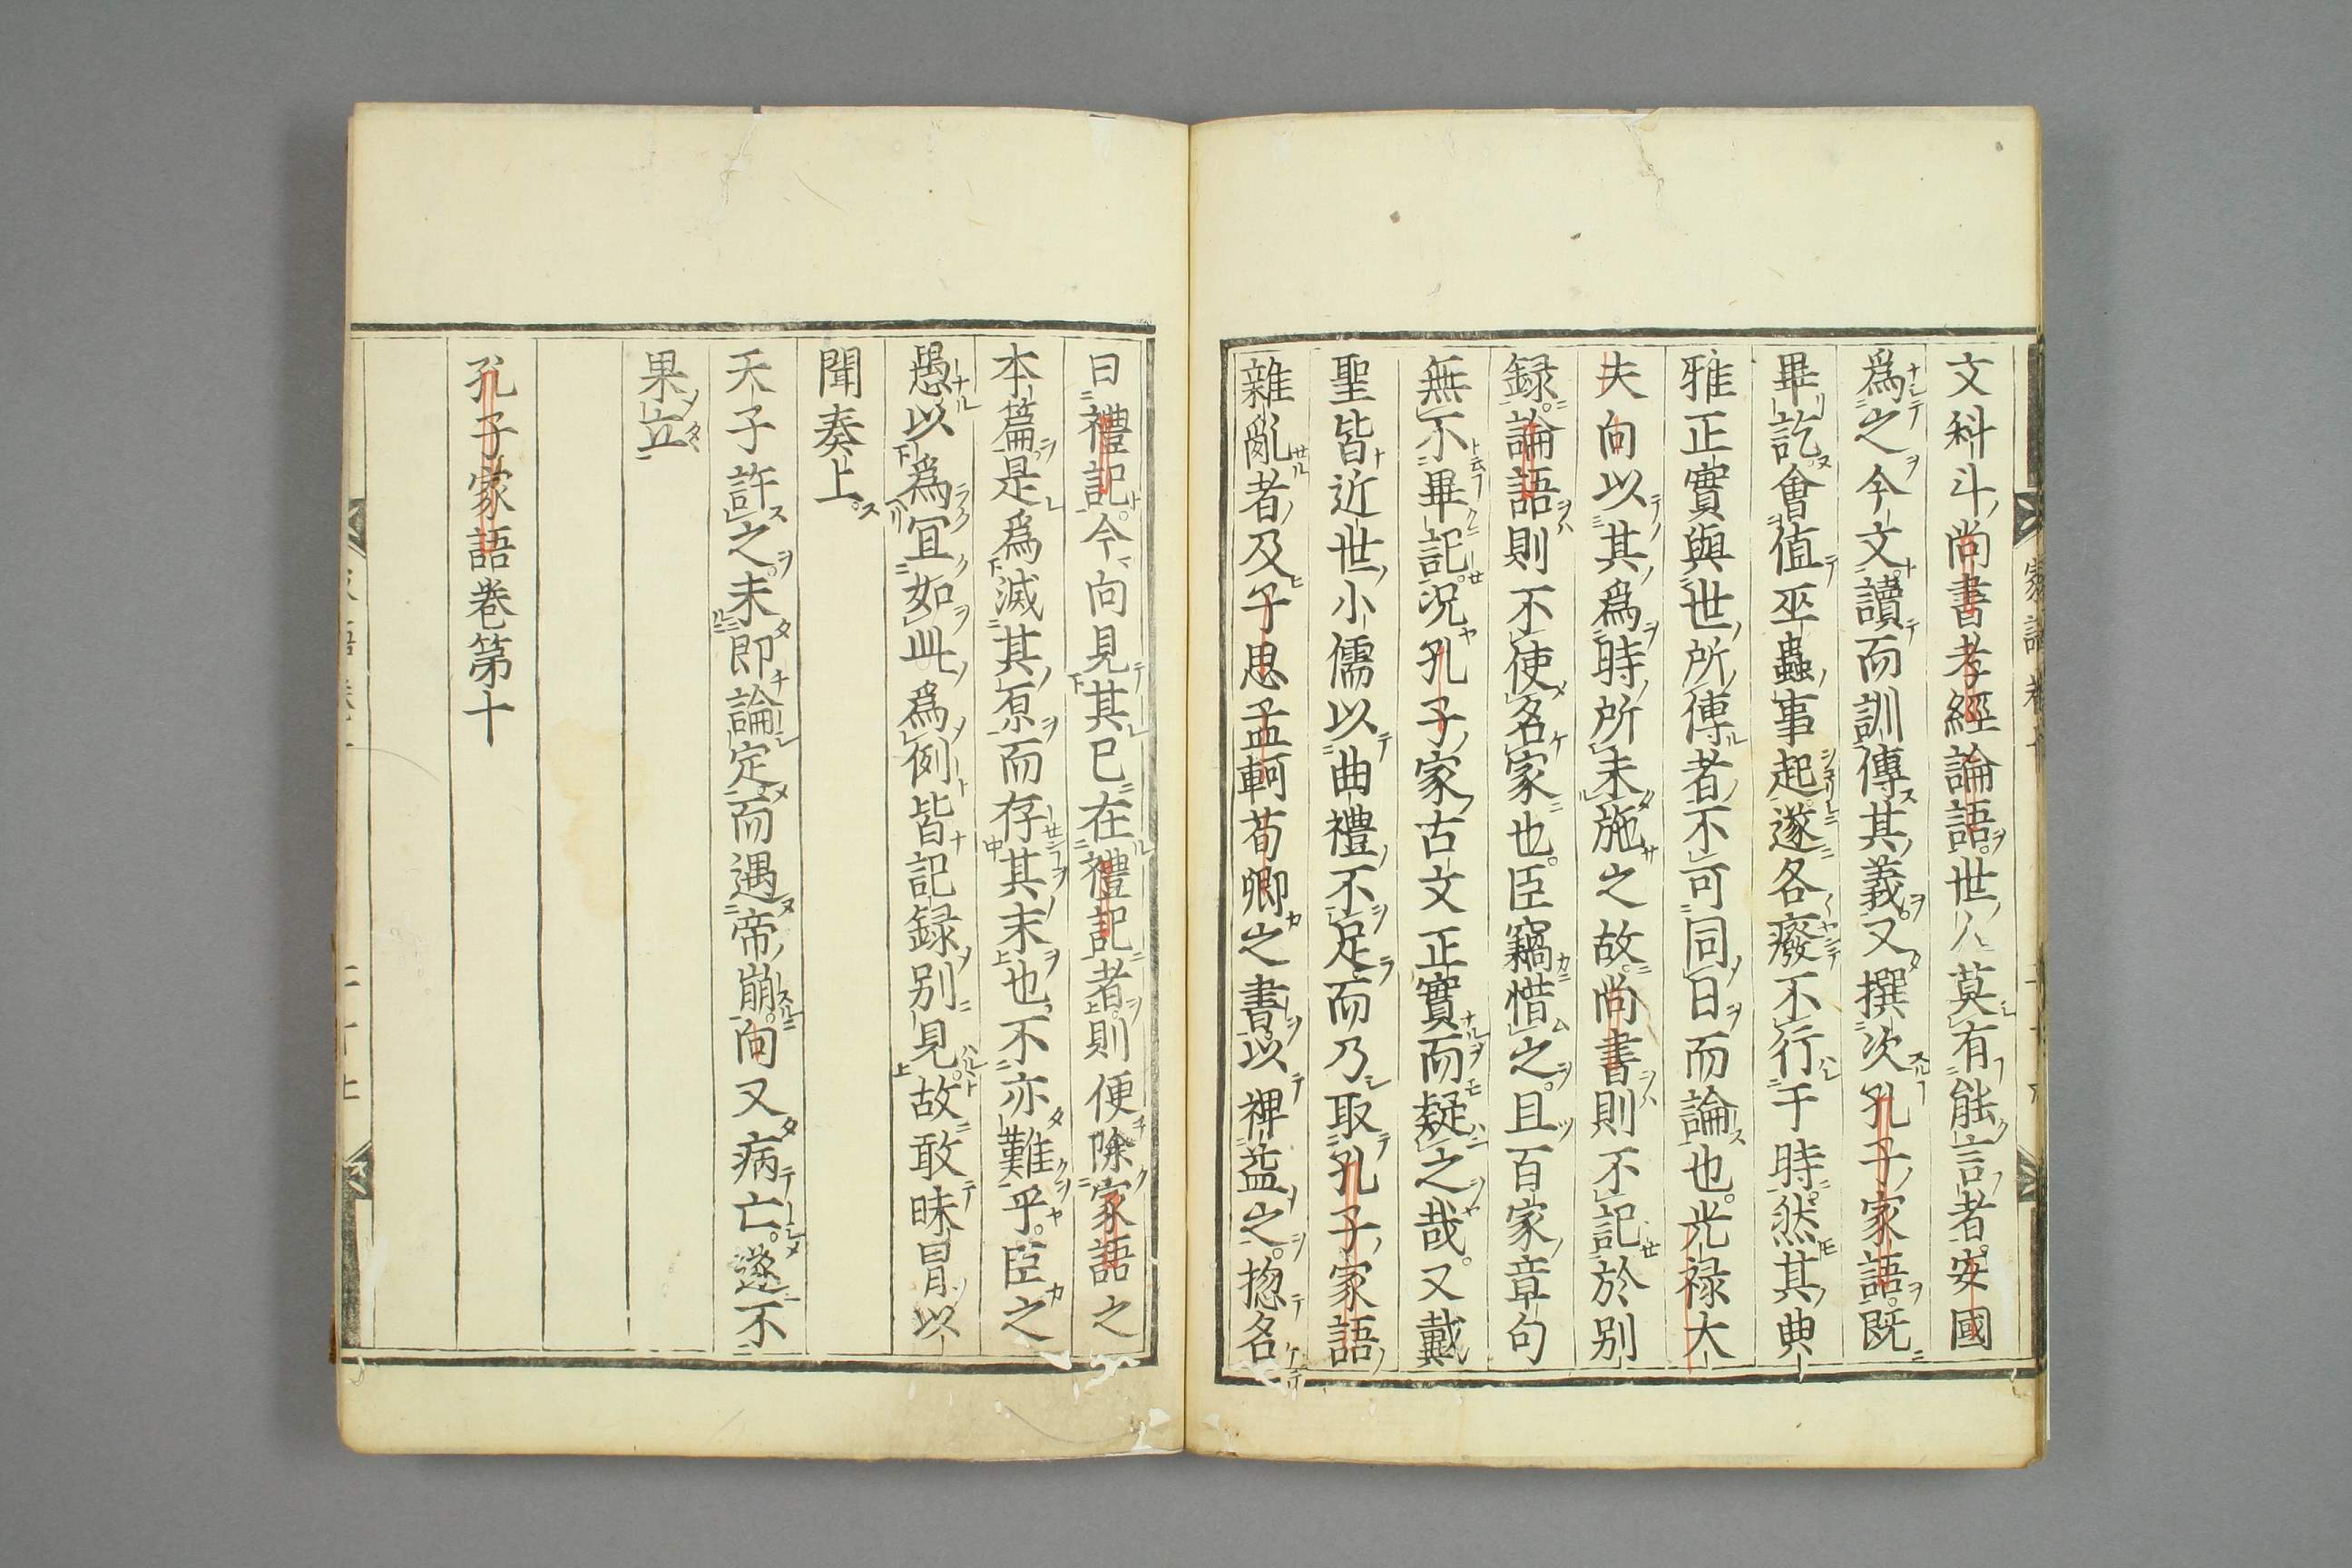 文科斗尚書孝經論語世人莫有能言者安國
爲之今文讀而訓傳其義又撰次孔子家語既
畢訖會値巫蠱事起遂各廢不行于時然其典
雅正實與世所傳者不可同日而論也光禄大
夫向以其爲時所未施之故尚書則不記於别
録論語則不使名家也臣竊惜之且百家章句
無不畢記况孔子家古文正實而疑之哉又戴
聖皆近世小儒以曲禮不足而乃取孔子家語
雜亂者及子思孟軻荀卿之書以裨益之揔名
曰禮記今向見其已在禮記者則便除家語之
本篇是爲滅其原而存其末也不亦難乎臣之
愚以爲宜如此爲例皆記録别見故敢昧冒以
聞奏上
天子許之未即論定而遇帝崩向又病亡遂不
果立
孔子家語卷第十